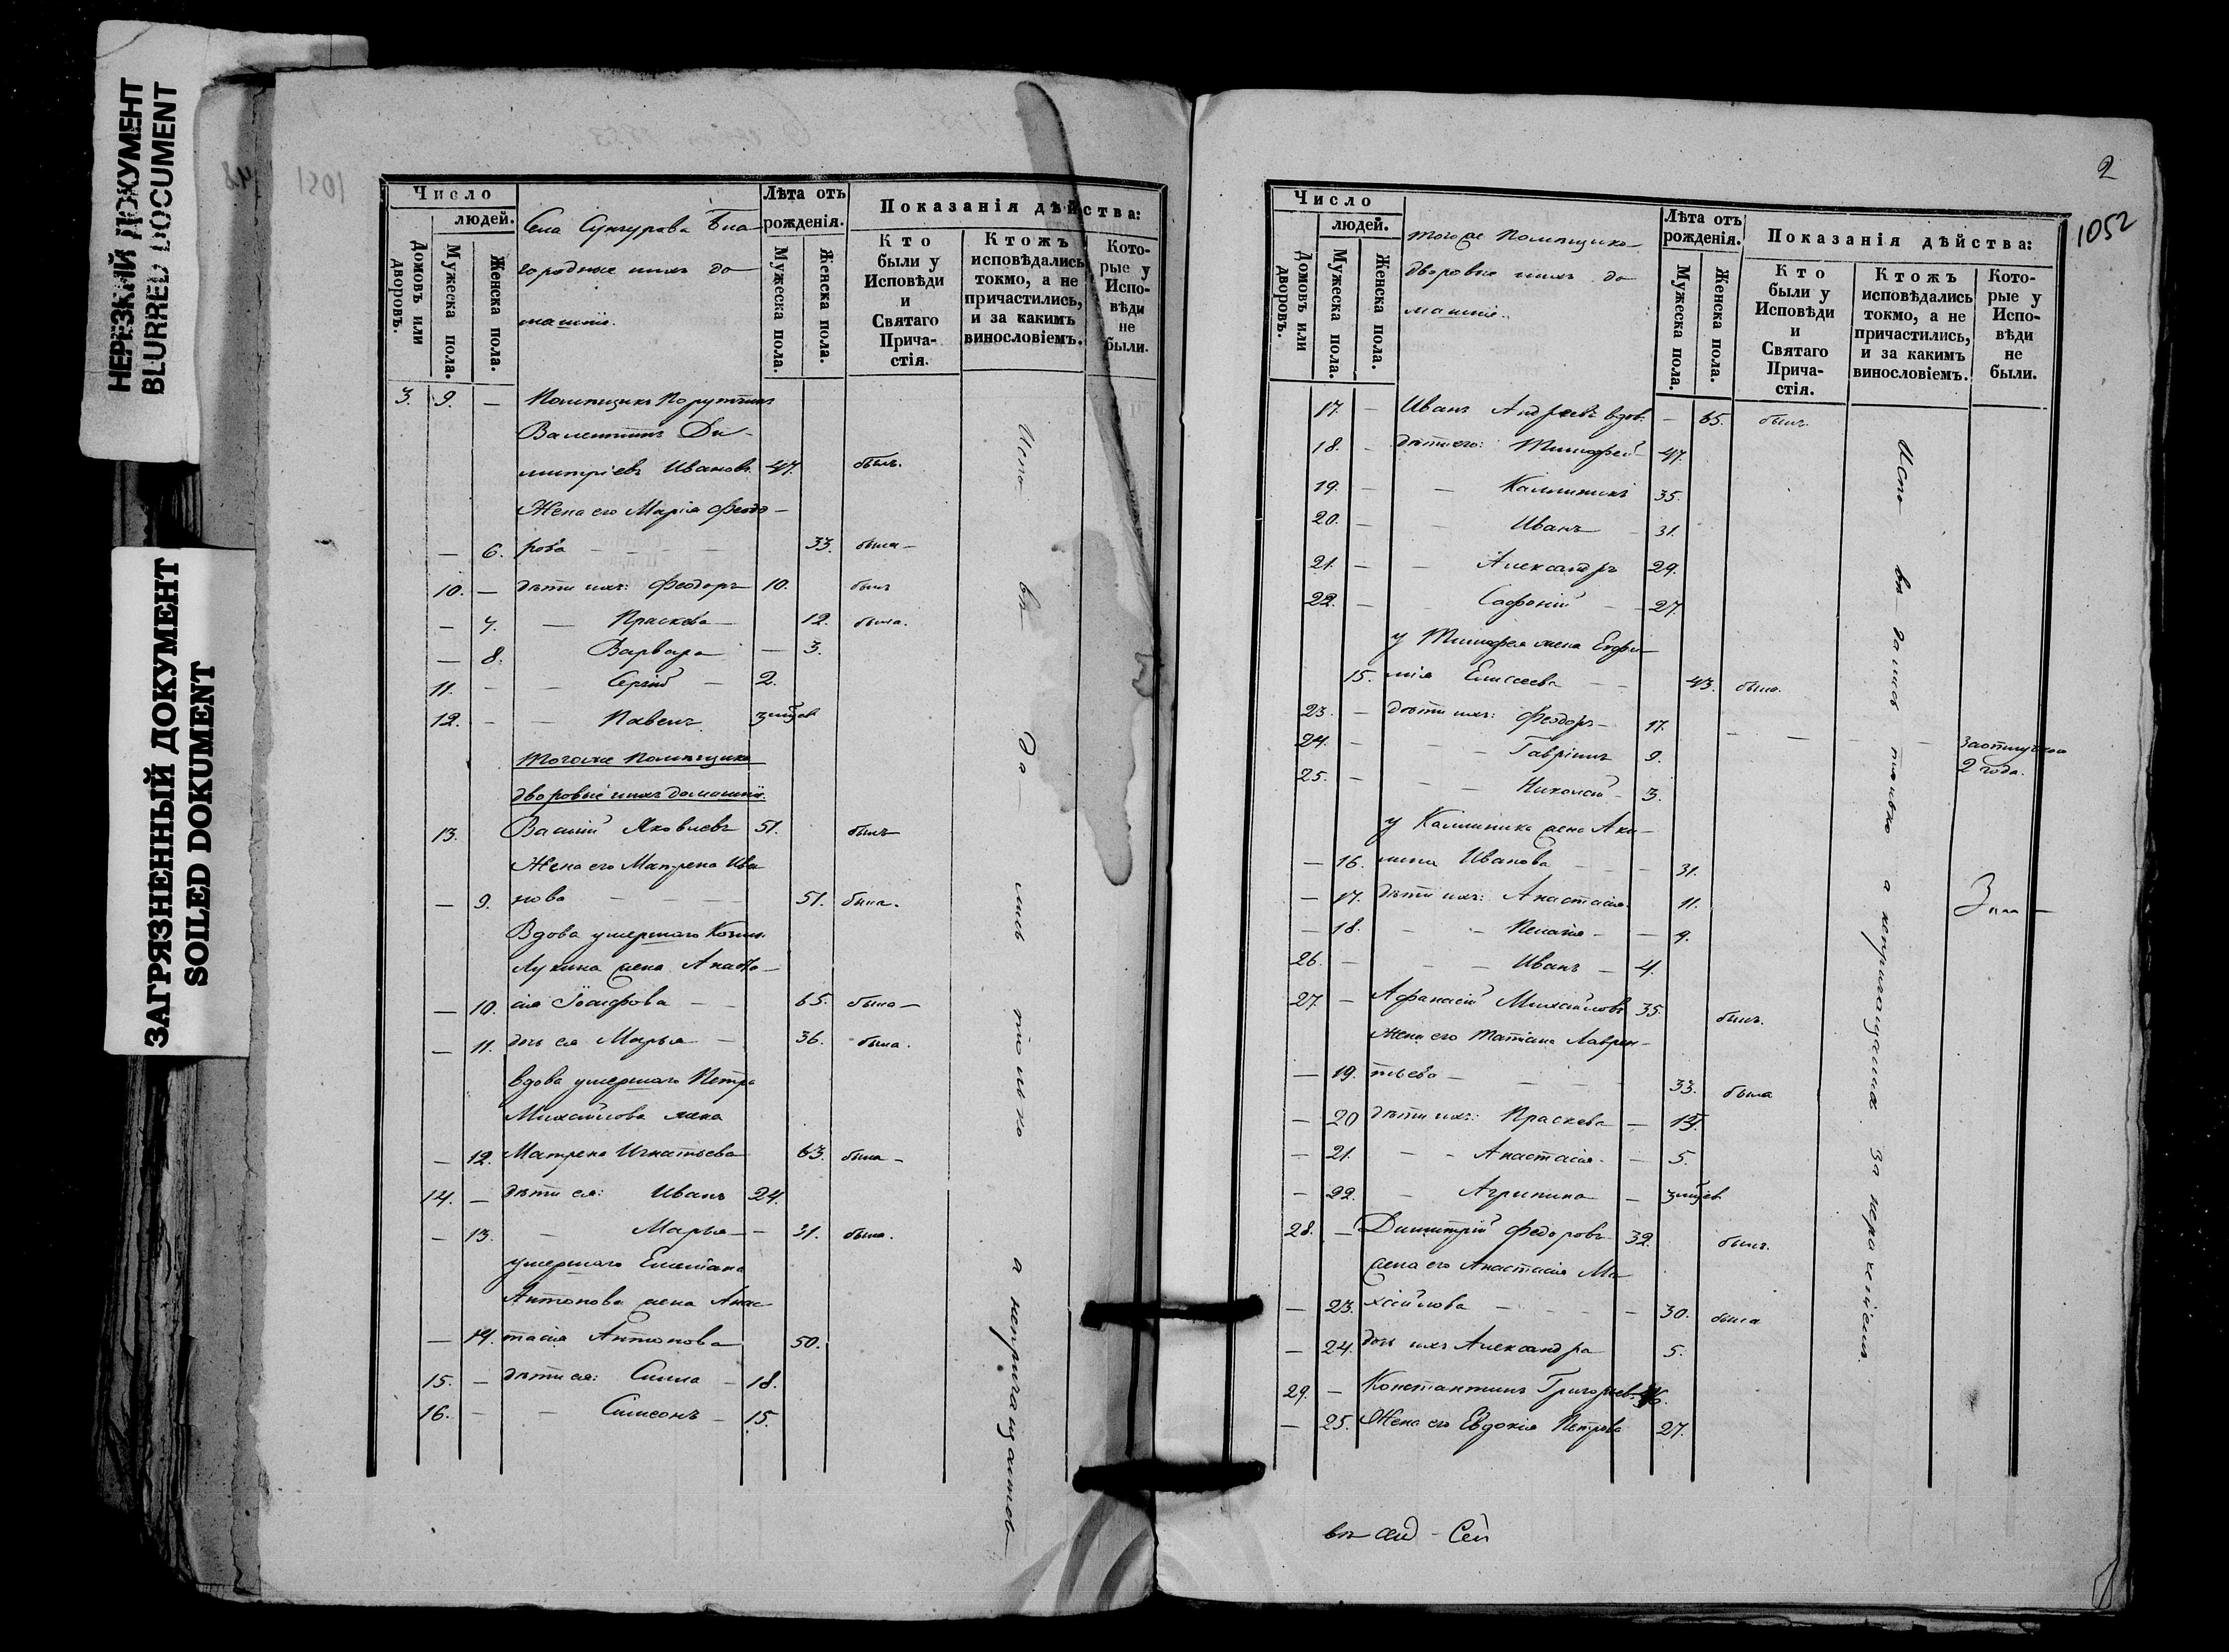 НЕРЕЗКИЙ ДОКУМЕНТ
BLURRED DOCUMENT
ЗАГРЯЗНЕННЫЙ ДОКУМЕНТ
SOILED DOKUMENT
1051
Число
людей.
Домовъ или дворовъ.
Мужеска пола.
Женска пола.
Села Сунгурова Бла-
городные и ихъ до-
машніе.
Лѣта отъ рожденія.
Мужеска пола.
Женска пола.
Показанія дѣйства:
Кто были у Исповѣди и Святаго Прича-стія.
Ктожъ исповѣдались токмо, а не причастились, и за какимъ винословіемъ.
Кото-рые у Испо-вѣди не были.
3. 9. — Помѣщикъ Порутчикъ
Валентинъ Ди-
митріевъ Ивановъ 47. былъ.
Жена его Марія Феодо-
— 6. рова 33. была
10. — дѣти ихъ: Феодоръ 10. былъ
— 7. — Праскева 12. была.
— 8. Варвара — 3.
11. - - Сергій - 2.
12. - - Павелъ
Тогоже Помѣщика
дворовые и ихъ домашніе.
13. Василій Яковлевъ 51. былъ
Жена его Матрена Ива-
— 9. нова 51. была.
Вдова умершаго Козмы
Лукина жена Анаста-
— 10. сія 65. была
— 11. дочь ея Марья 36. была.
вдова умершаго Петра
Михайлова жена
— 12. Матрена Игнатьева 63. была
14. — дѣти ея: Иванъ 24.
— 13. - Марья - 31. была.
умершаго Емеліана
Антонова жена Анас-
— 14. тасія Антонова 50.
15. — дѣти ея: Симма - 18.
16. - - Симеонъ - 15.
Испо- вѣ- да- лись только а непричащались
2
1052
Число
людей.
Домовъ или дворовъ.
Мужеска пола.
Женска пола.
тогоже Помѣщика
дворовые и ихъ до-
машніе.
Лѣта отъ рожденія.
Мужеска пола.
Женска пола.
Показанія дѣйства:
Кто были у Исповѣди и Святаго Прича-стія.
Ктожъ исповѣдались токмо, а не причастились, и за какимъ винословіемъ.
Кото-рые у Испо-вѣди не были.
17. — Иванъ Андреевъ вдов. — 65. былъ.
18. - дѣти его: Тимофей 47.
19. - - Каллиникъ 35.
20. - - Иванъ - 31.
21. - - Александръ 29.
22. - - Софроній - 27.
у Тимофея жена Евфи-
15. мія Елисеева - 43. была.
23. - дѣти ихъ: Феодоръ 17.
24. - - Гавріилъ 9. 2 года.
25. - - Николай 3.
у Каллиника жена Аки-
— 16. лина Иванова - 31.
— 17. дѣти ихъ: Анастасія 11.
— 18. - - Пелагія - 9.
26. - - Иванъ - 4.
27. — Афанасій Михайловъ 35. былъ.
Жена его Татіана Лаврен-
— 19. тьева 33. была
— 20 дѣти ихъ: Праскева
— 21. - - Анастасія - 5.
— 22. - Агрипина -
28. — Димитрій Федоровъ 32. былъ.
жена его Анастасія Ми-
— 23. хайлова - 30. была
— 24. дочь ихъ Александра 5.
29. — Константинъ Григорьевъ
— 25. Жена его Евдокія Петрова 27.
Испо- вѣ- дались только а непричащались за нераченіемъ